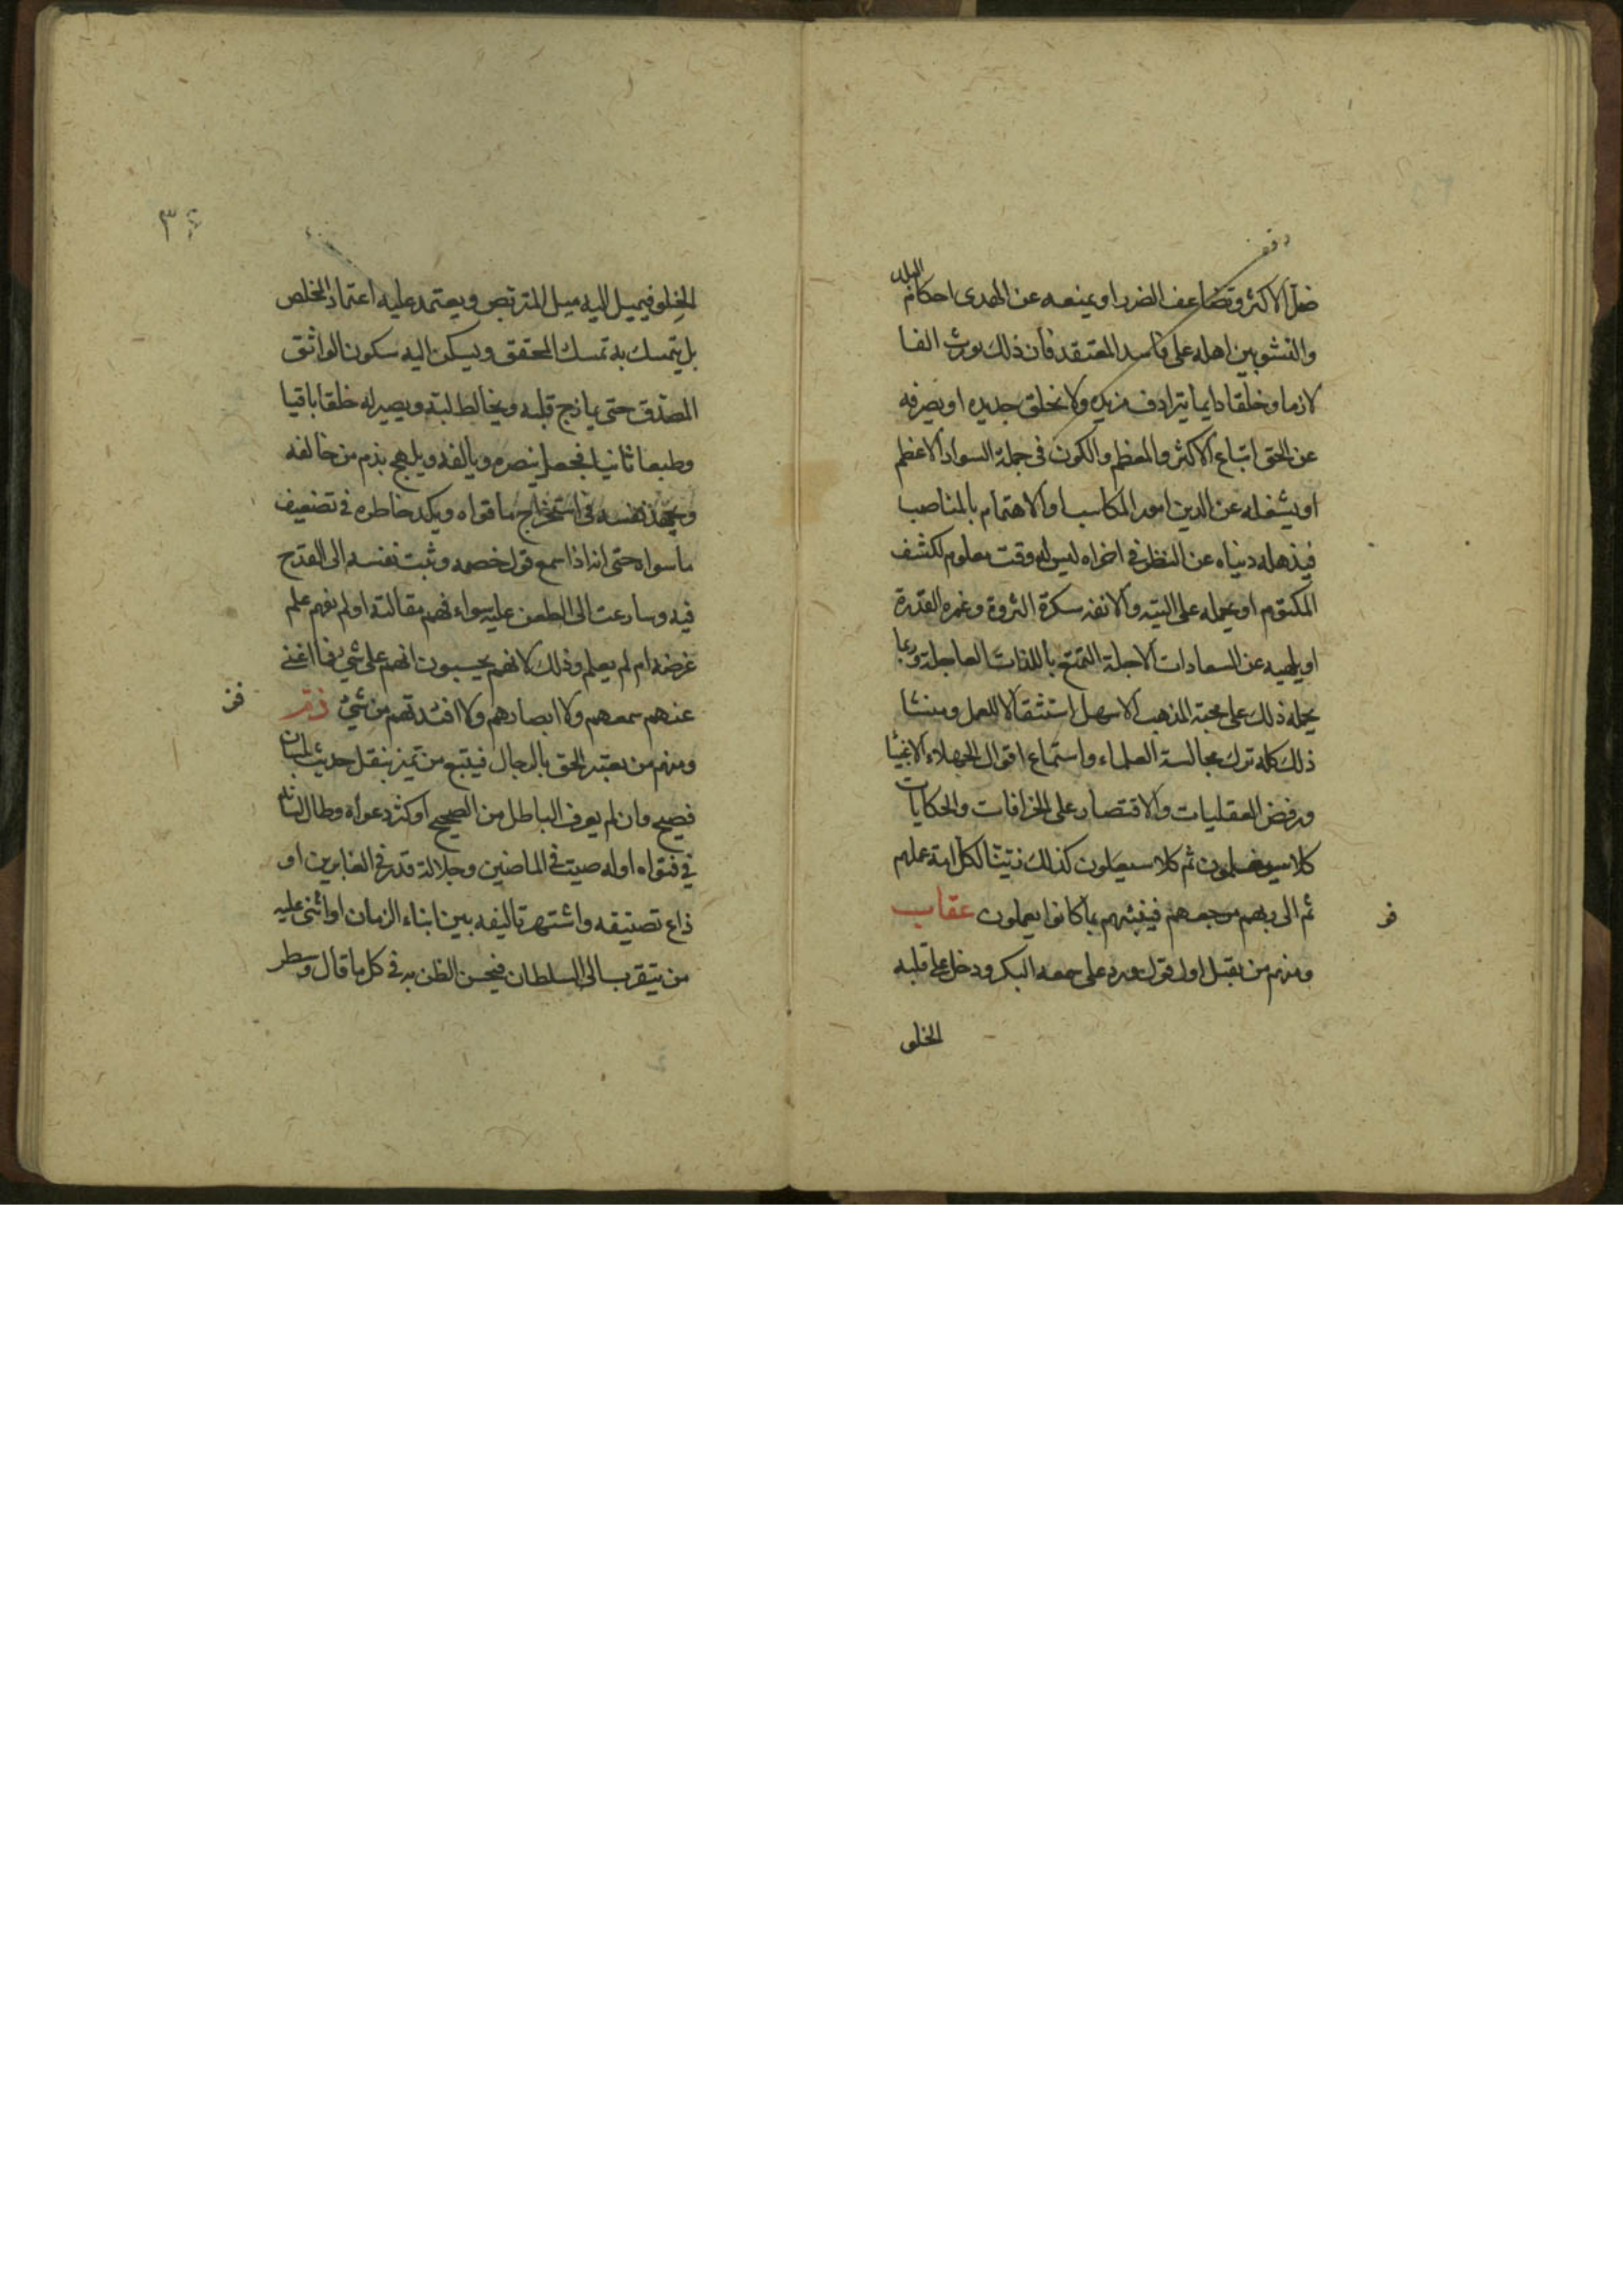 ضل الاكثر وتضاعف الضرر او يمنعه عن الهدى احكام البلد
والنشو بين اهله على فاسد المعتقد فان ذلك يورث الفا
لازما وخلقا دايما يترادف مزيده ولا يخلق جديده او يصرفه
عن الحق اتباع الاكثر والمعظم والكون فى جملة السواد الاعظم
او يشغله عن الدين امور المكاسب والاهتمام بالمناصب
فيذهله دنياه عن النظر فى اخراه ليس له وقت معلوم لكشف
المكتوم او يحمله على التيه والانفه سكرة الثروة وغمره القدرة
او يلهيه عن السعادات الاجلة التمتع باللذات العاجلة وربما
يحمله ذلك على محبة المذهب الاسهل استثقالا للعمل ومنشا
ذلك كله ترك مجالسة العلماء واستماع اقوال الجهلاء الاغبيا
ورفض العقليات والاقتصار على الخرافات والحكايات
كلا سيعلمون ثم كلا سيعلمون كذلك زينا لكل امة عملهم
ثم الى ربهم مرجعهم فينبئهم بما كانوا يعملون عقاب
ومنهم من يقبل اول قول ورد على سمعه البكر ودخل على قلبه
الخلو
٣٤
الخلو فيميل اليه ميل المتربص ويعتمد عليه اعتماد المخلص
بل يتمسك به تمسك المحقق ويسكن اليه سكون الواثق
المصدق حتى يمازج قلبه ويخالط لبه ويصير له خلقا باقيا
وطبعا ثانيا فيجعل ينصره ويالفه ويلهج بذم من خالفه
ويجهد نفسه فى استخراج ما قواه ويكد خاطره فى تضعيف
ما سواه حتى انه اذا سمع قول خصمه وثبت نفسه الى القدح
فيه وسارعت الى الطعن عليه سواء فهم مقالته او لم يفهم علم
غرضه ام لم يعلم وذلك لانهم يحسبون انهم على شئ فما اغنى
عنهم سمعهم ولا ابصارهم ولا افئدتهم من شئ
ومنهم من يعتبر الحق بالرجال فيتبع من تميز بنقل حديث لسان
فصيح وان لم يعرف الباطل من الصحيح او كثر دعواه وطال لسانه
فى فتواه او له صيت فى الماضين وجلالة قدر فى الغابرين او
ذاع تصنيفه واشتهر تاليفه بين ابناء الزمان او اثنى عليه
من يتقرب الى السلطان فيحسن الظن به فى كل ما قال وسطر